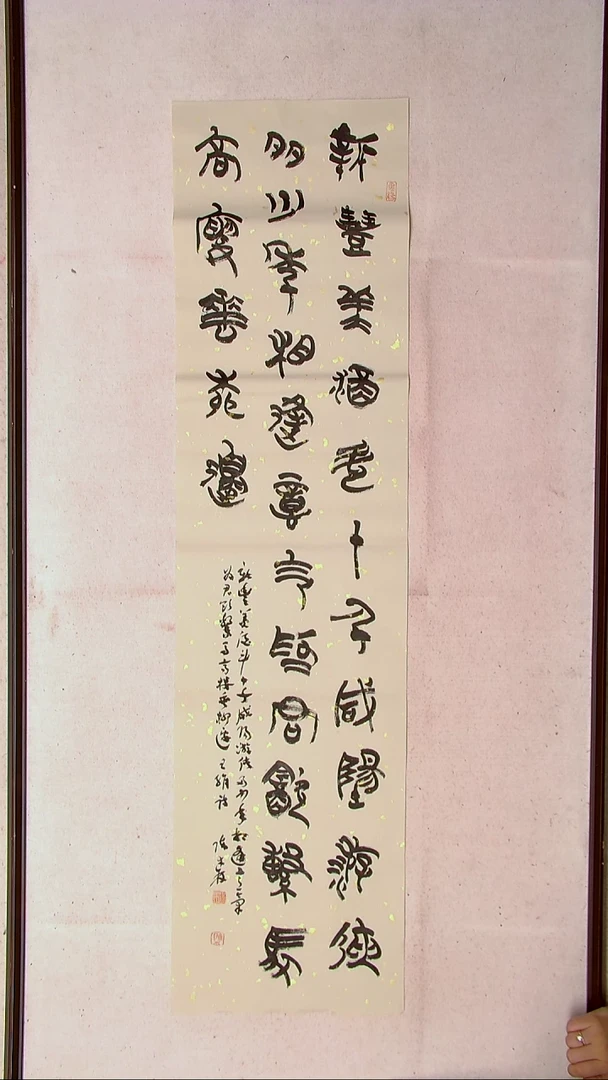 新豐美酒斗十千咸陽游俠
多少年相逢意氣為君飲繫馬
高樓垂柳邊
新豐美酒斗十千咸陽游俠多少年相逢意氣
為君飲繫馬高樓垂柳邊 王維詩